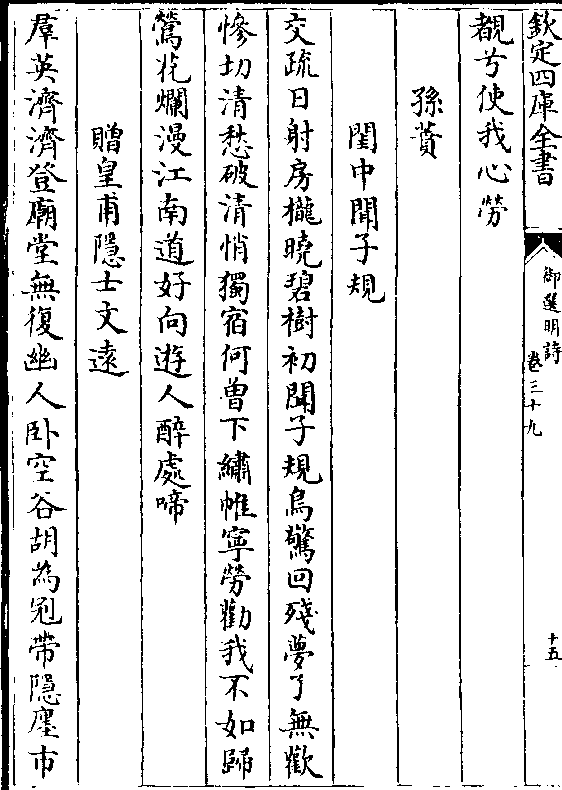 欽定四庫全書
御選明詩
卷三十九
十五
覩兮使我心勞
孫蕡
閨中聞子規
交疏日射房櫳曉碧樹初聞子規鳥驚回殘夢了無歡
慘切清愁破清悄獨宿何曾下繡帷寧勞勸我不如歸
鶯花爛漫江南道好向遊人醉處啼
贈皇甫隱士文遠
羣英濟濟登廟堂無復幽人臥空谷胡為冠帶隱廛市